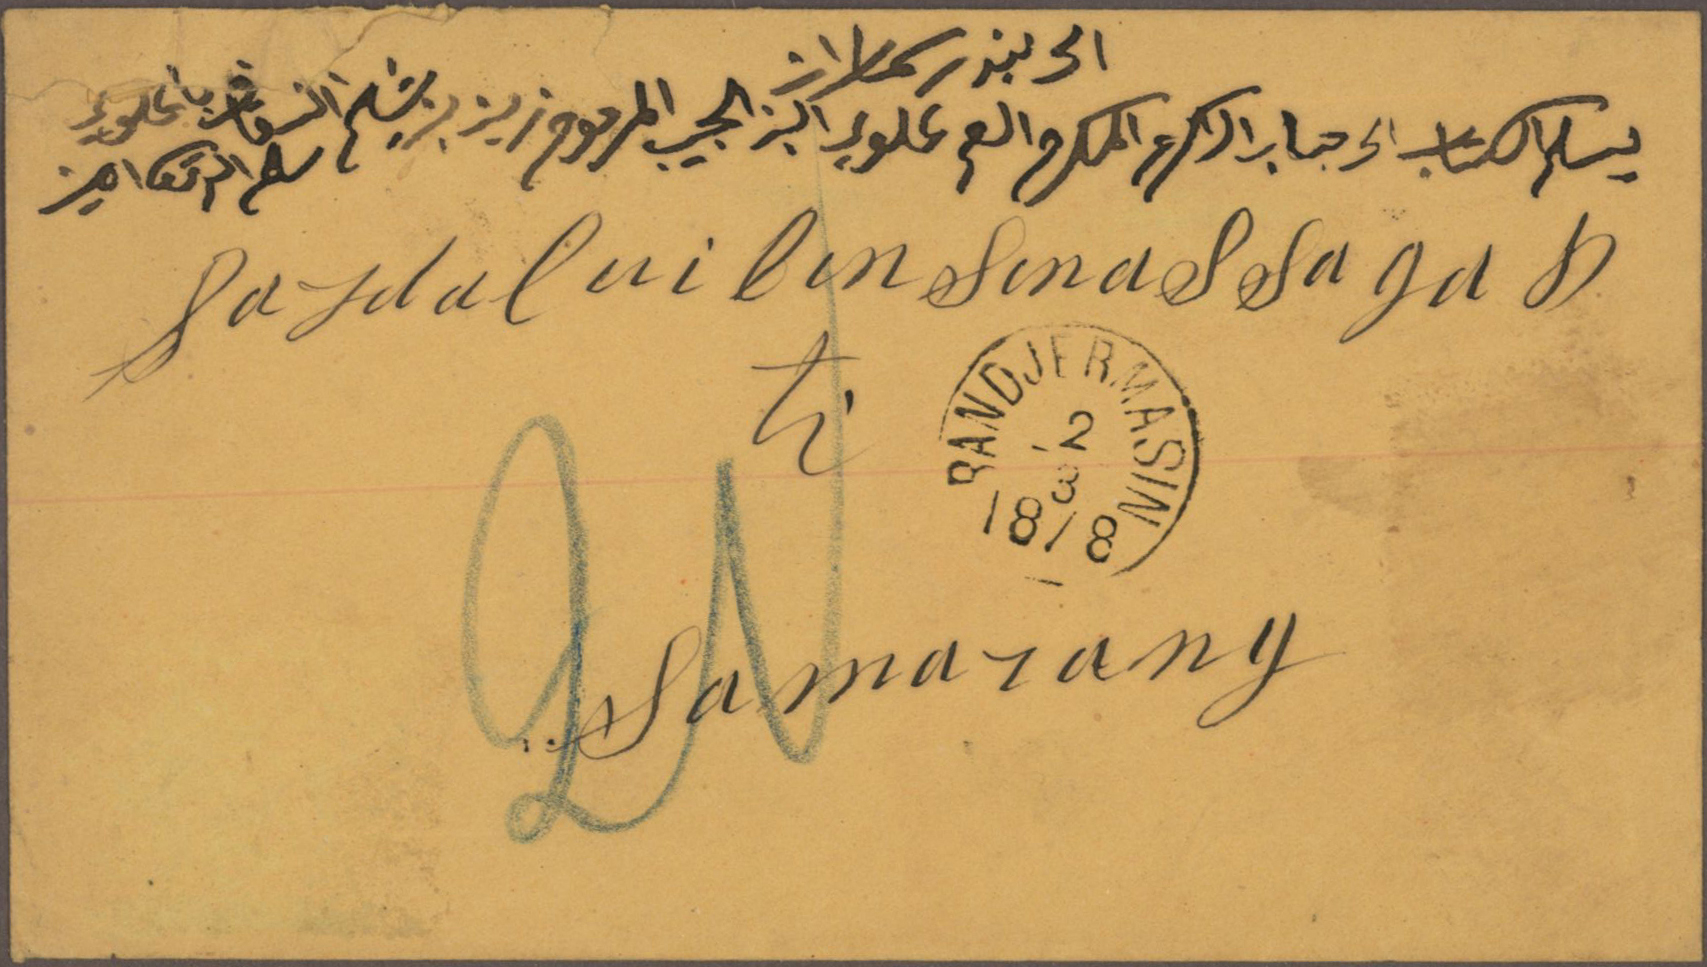 الى بندر سمارانڠ
يسلم الكتاب الى جناب الاكرم المكرم العم علوي ابن الحبيب المرحوم زين بن
سلم الله امين
Saydaluibin Sina S Sagaf
ti
BANDJERMASIN
2
3
1878
Samarang